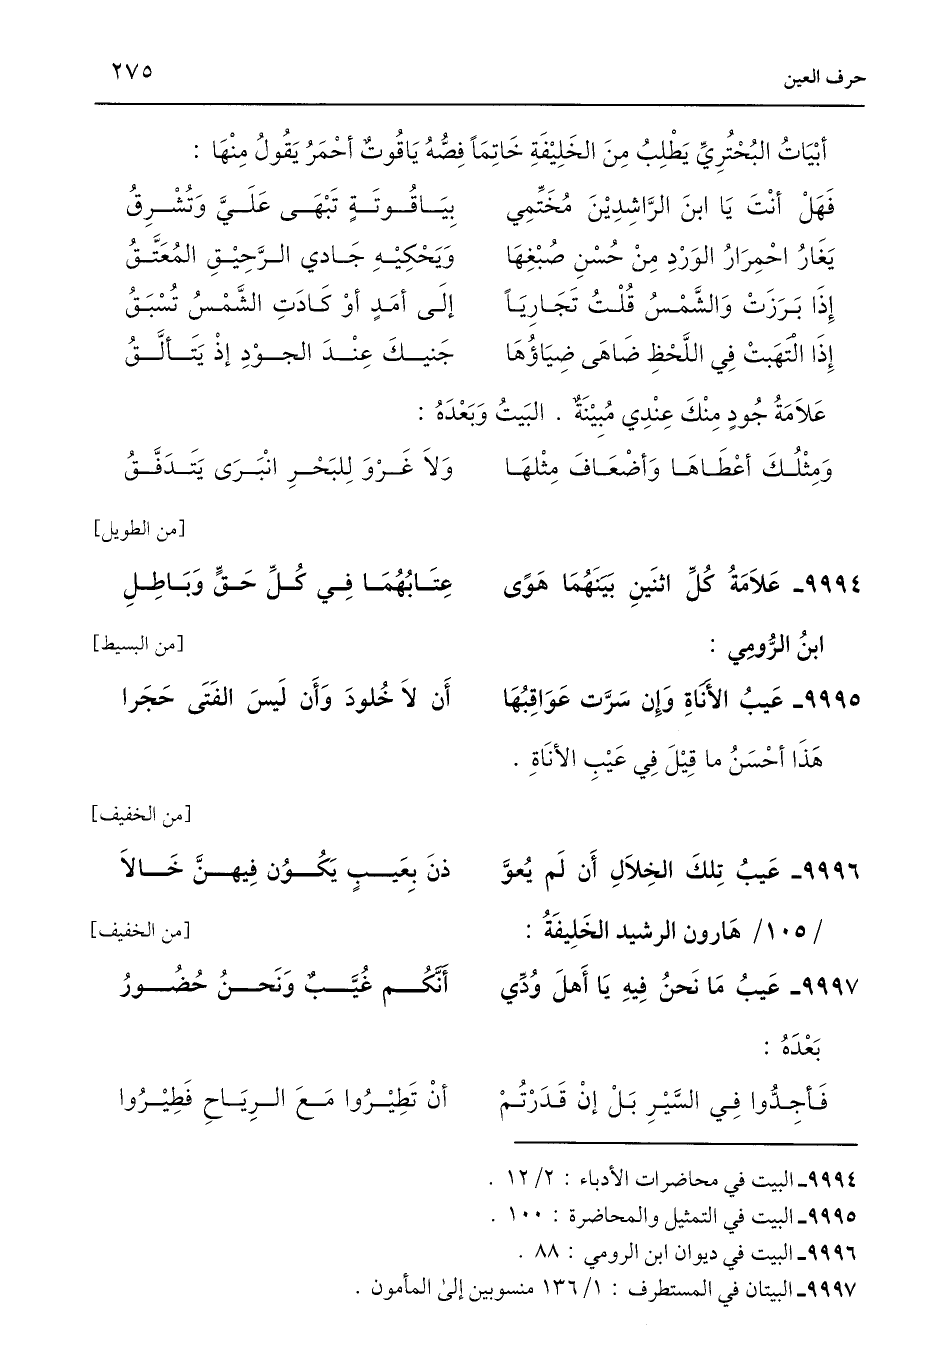 حرف العين ٢٧٥
أَبْيَاتُ البُحْتُرِيِّ يَطْلِبُ مِنَ الخَلِيْفَةِ خَاتِمَاً فِصُّهُ يَاقُوتٌ أحْمَرُ يَقُولُ مِنْهَا :
فَهَلْ أنْتَ يَا ابنَ الرَّاشِدِيْنَ مُخَتِّمِي بِيَاقُوتَةٍ تَبْهَى عَلَيَّ وَتُشْرِقُ
يَغَارُ احْمِرَارُ الوَرْدِ مِنْ حُسْنِ صُبْغِهَا وَيَحْكِيْهِ جَادي الرَّحِيْقِ المُعَتَّقُ
إِذَا بَرَزَتْ وَالشَّمْسُ قُلْتُ تَجَارِيَاً إلَى أمَدٍ أوْ كَادَتِ الشَّمْسُ تُسْبَقُ
إِذَا الْتَهَبَتْ فِي اللَّحْظِ ضَاهَى ضِيَاؤُهَا جَنيكَ عِنْدَ الجوْدِ إذْ يَتَألَّقُ
عَلاَمَةُ جُودٍ مِنْكَ عِنْدِي مُبِيْنَةٌ . البَيتُ وَبَعْدَهُ :
وَمِثْلُكَ أعْطَاهَا وَأضْعَافَ مِثْلهَا وَلاَ غَرْوَ لِلبَحْرِ انْبَرَى يَتَدَفَّقُ
[من الطويل]
٩٩٩٤ـ عَلاَمَةُ كُلِّ اثنَينِ بَينَهُمَا هَوًى عِتَابُهُمَا فِي كُلِّ حَقٍّ وَبَاطِلِ
ابنُ الرُّومِي : [من البسيط]
٩٩٩٥ـ عَيبُ الأَنَاةِ وَإِن سَرَّت عَوَاقِبُهَا أَن لاَ خُلودَ وَأَن لَيسَ الفَتَى حَجَرا
هَذَا أحْسَنُ ما قِيْلَ فِي عَيْبِ الأنَاةِ .
[من الخفيف]
٩٩٩٦ـ عَيبُ تِلكَ الخِلاَلِ أَن لَم يُعوَّ ذنَ بِعَيبٍ يَكُوُن فِيهنَّ خَالاَ
/١٠٥/ هَارون الرشيد الخَلِيفَةُ : [من الخفيف]
٩٩٩٧ـ عَيبُ مَا نَحنُ فِيهِ يَا أَهلَ وُدِّي أَنَّكُم غُيَّبٌ وَنَحنُ حُضُورُ
بَعْدَهُ :
فَأجِدُّوا فِي السَّيْرِ بَلْ إنْ قَدَرْتُمْ أنْ تَطِيْرُوا مَعَ الرِيَاحِ فَطِيْرُوا
٩٩٩٤ـ البيت في محاضرات الأدباء : ٢/ ١٢ .
٩٩٩٥ـ البيت في التمثيل والمحاضرة : ١٠٠ .
٩٩٩٦ـ البيت في ديوان ابن الرومي : ٨٨ .
٩٩٩٧ـ البيتان في المستطرف : ١/ ١٣٦ منسوبين إلىٰ المأمون .